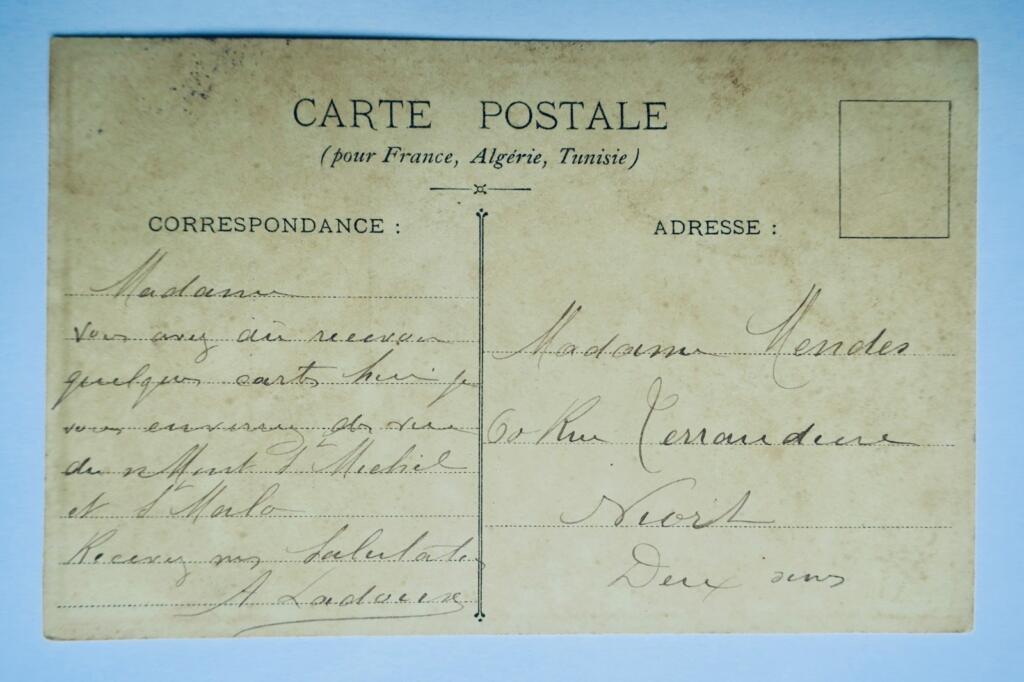 CARTE POSTALE
(pour France, Algérie, Tunisie)
CORRESPONDANCE :
Madame
vous avez dû recevoir
quelques carts hier je
vous enverrai des vue
du Mont St Michel
et St Malo
Recevez mes Salutats
A Ladoux
ADRESSE :
Madame Mendes
60 Rue Terraudiere
Niort
Deux sevres